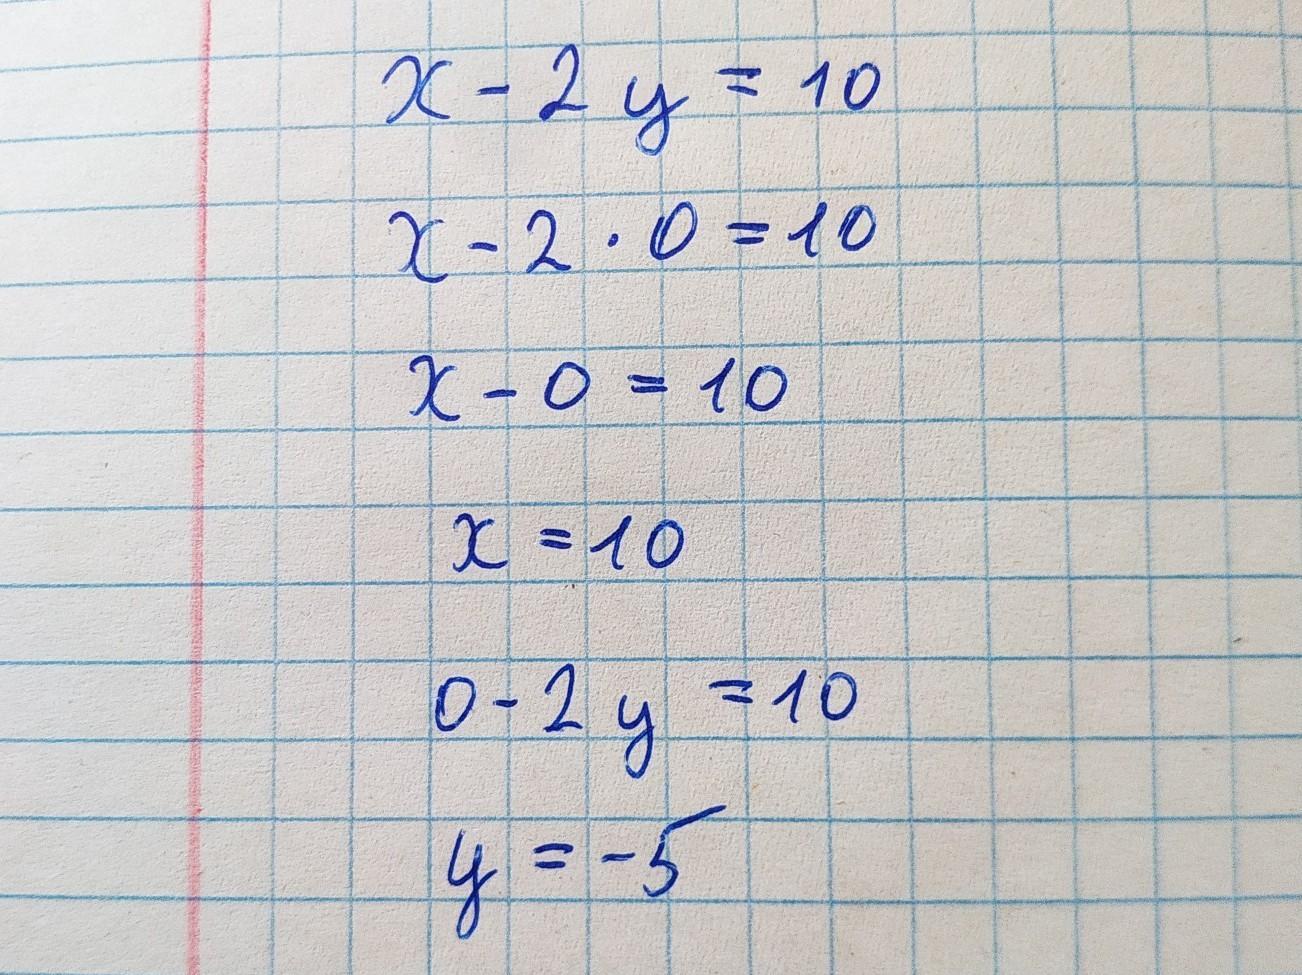 x - 2y = 10
x - 2 · 0 = 10
x - 0 = 10
x = 10
0 - 2y = 10
y = -5